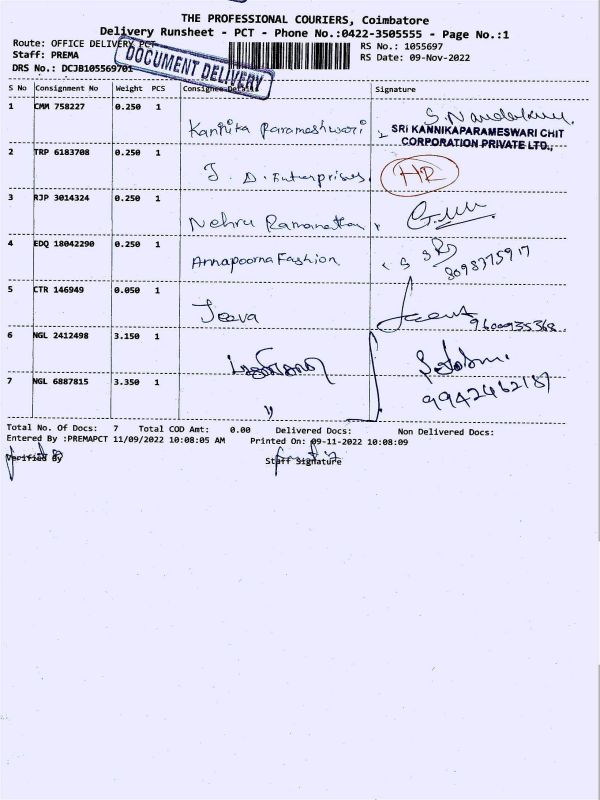 THE PROFESSIONAL COURIERS, Coimbatore
Delivery Runsheet - PCT - Phone No.:0422-3505555 - Page No.:1
Route: OFFICE DELIVERY PCT
RS No.: 1055697
Staff: PREMA
RS Date: 09-Nov-2022
DRS No.: DCJB105569701
DOCUMENT DELIVERY
S No Consignment No Weight PCS Consignee Details Signature
1 CMM 758227 0.250 1 Kannika Parameshwari S. Nandakumar
SRI KANNIKAPARAMESWARI CHIT
CORPORATION PRIVATE LTD.,
2 TRP 6183708 0.250 1 J. D. Enterprises. HR
3 RJP 3014324 0.250 1 Nehru Ramanathan
4 EDQ 18042290 0.250 1 Annapoorna Fashion 8098375917
5 CTR 146949 0.050 1 Jeeva 9600935368
6 NGL 2412498 3.150 1
7 NGL 6887815 3.350 1 " 9942462187
Total No. Of Docs: 7 Total COD Amt: 0.00 Delivered Docs: Non Delivered Docs:
Entered By :PREMAPCT 11/09/2022 10:08:05 AM Printed On: 09-11-2022 10:08:09
Verified By Staff Signature